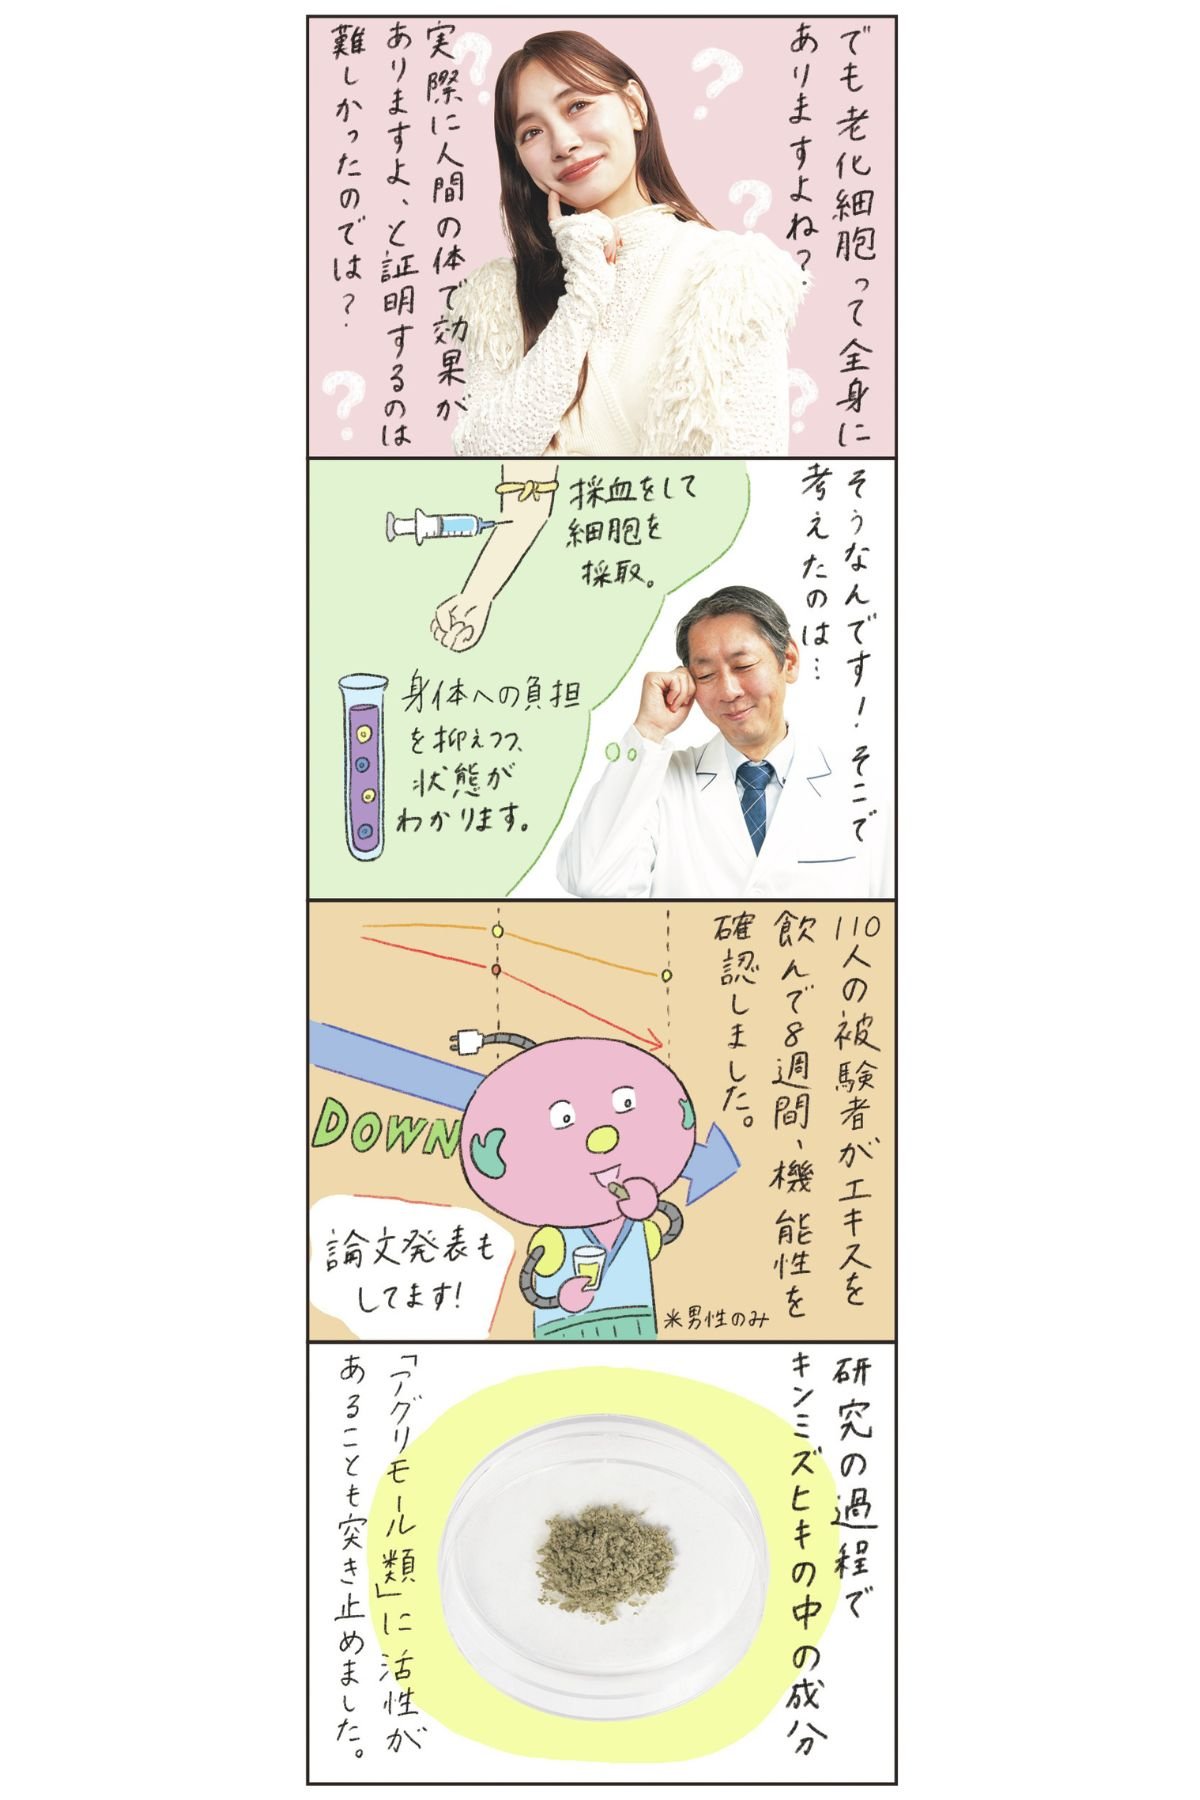 でも老化細胞って全身に
ありますよね?
実際に人間の体で効果が
ありますよ、と証明するのは
難しかったのでは?
そうなんです!そこで
考えたのは…
採血をして
細胞を
採取。
身体への負担
を抑えつつ、
状態が
わかります。
110人の被験者がエキスを
飲んで8週間、機能性を
確認しました。
DOWN
論文発表も
してます!
※男性のみ
研究の過程で
キンミズヒキの中の成分
「アグリモール類」に活性が
あることも突き止めました。